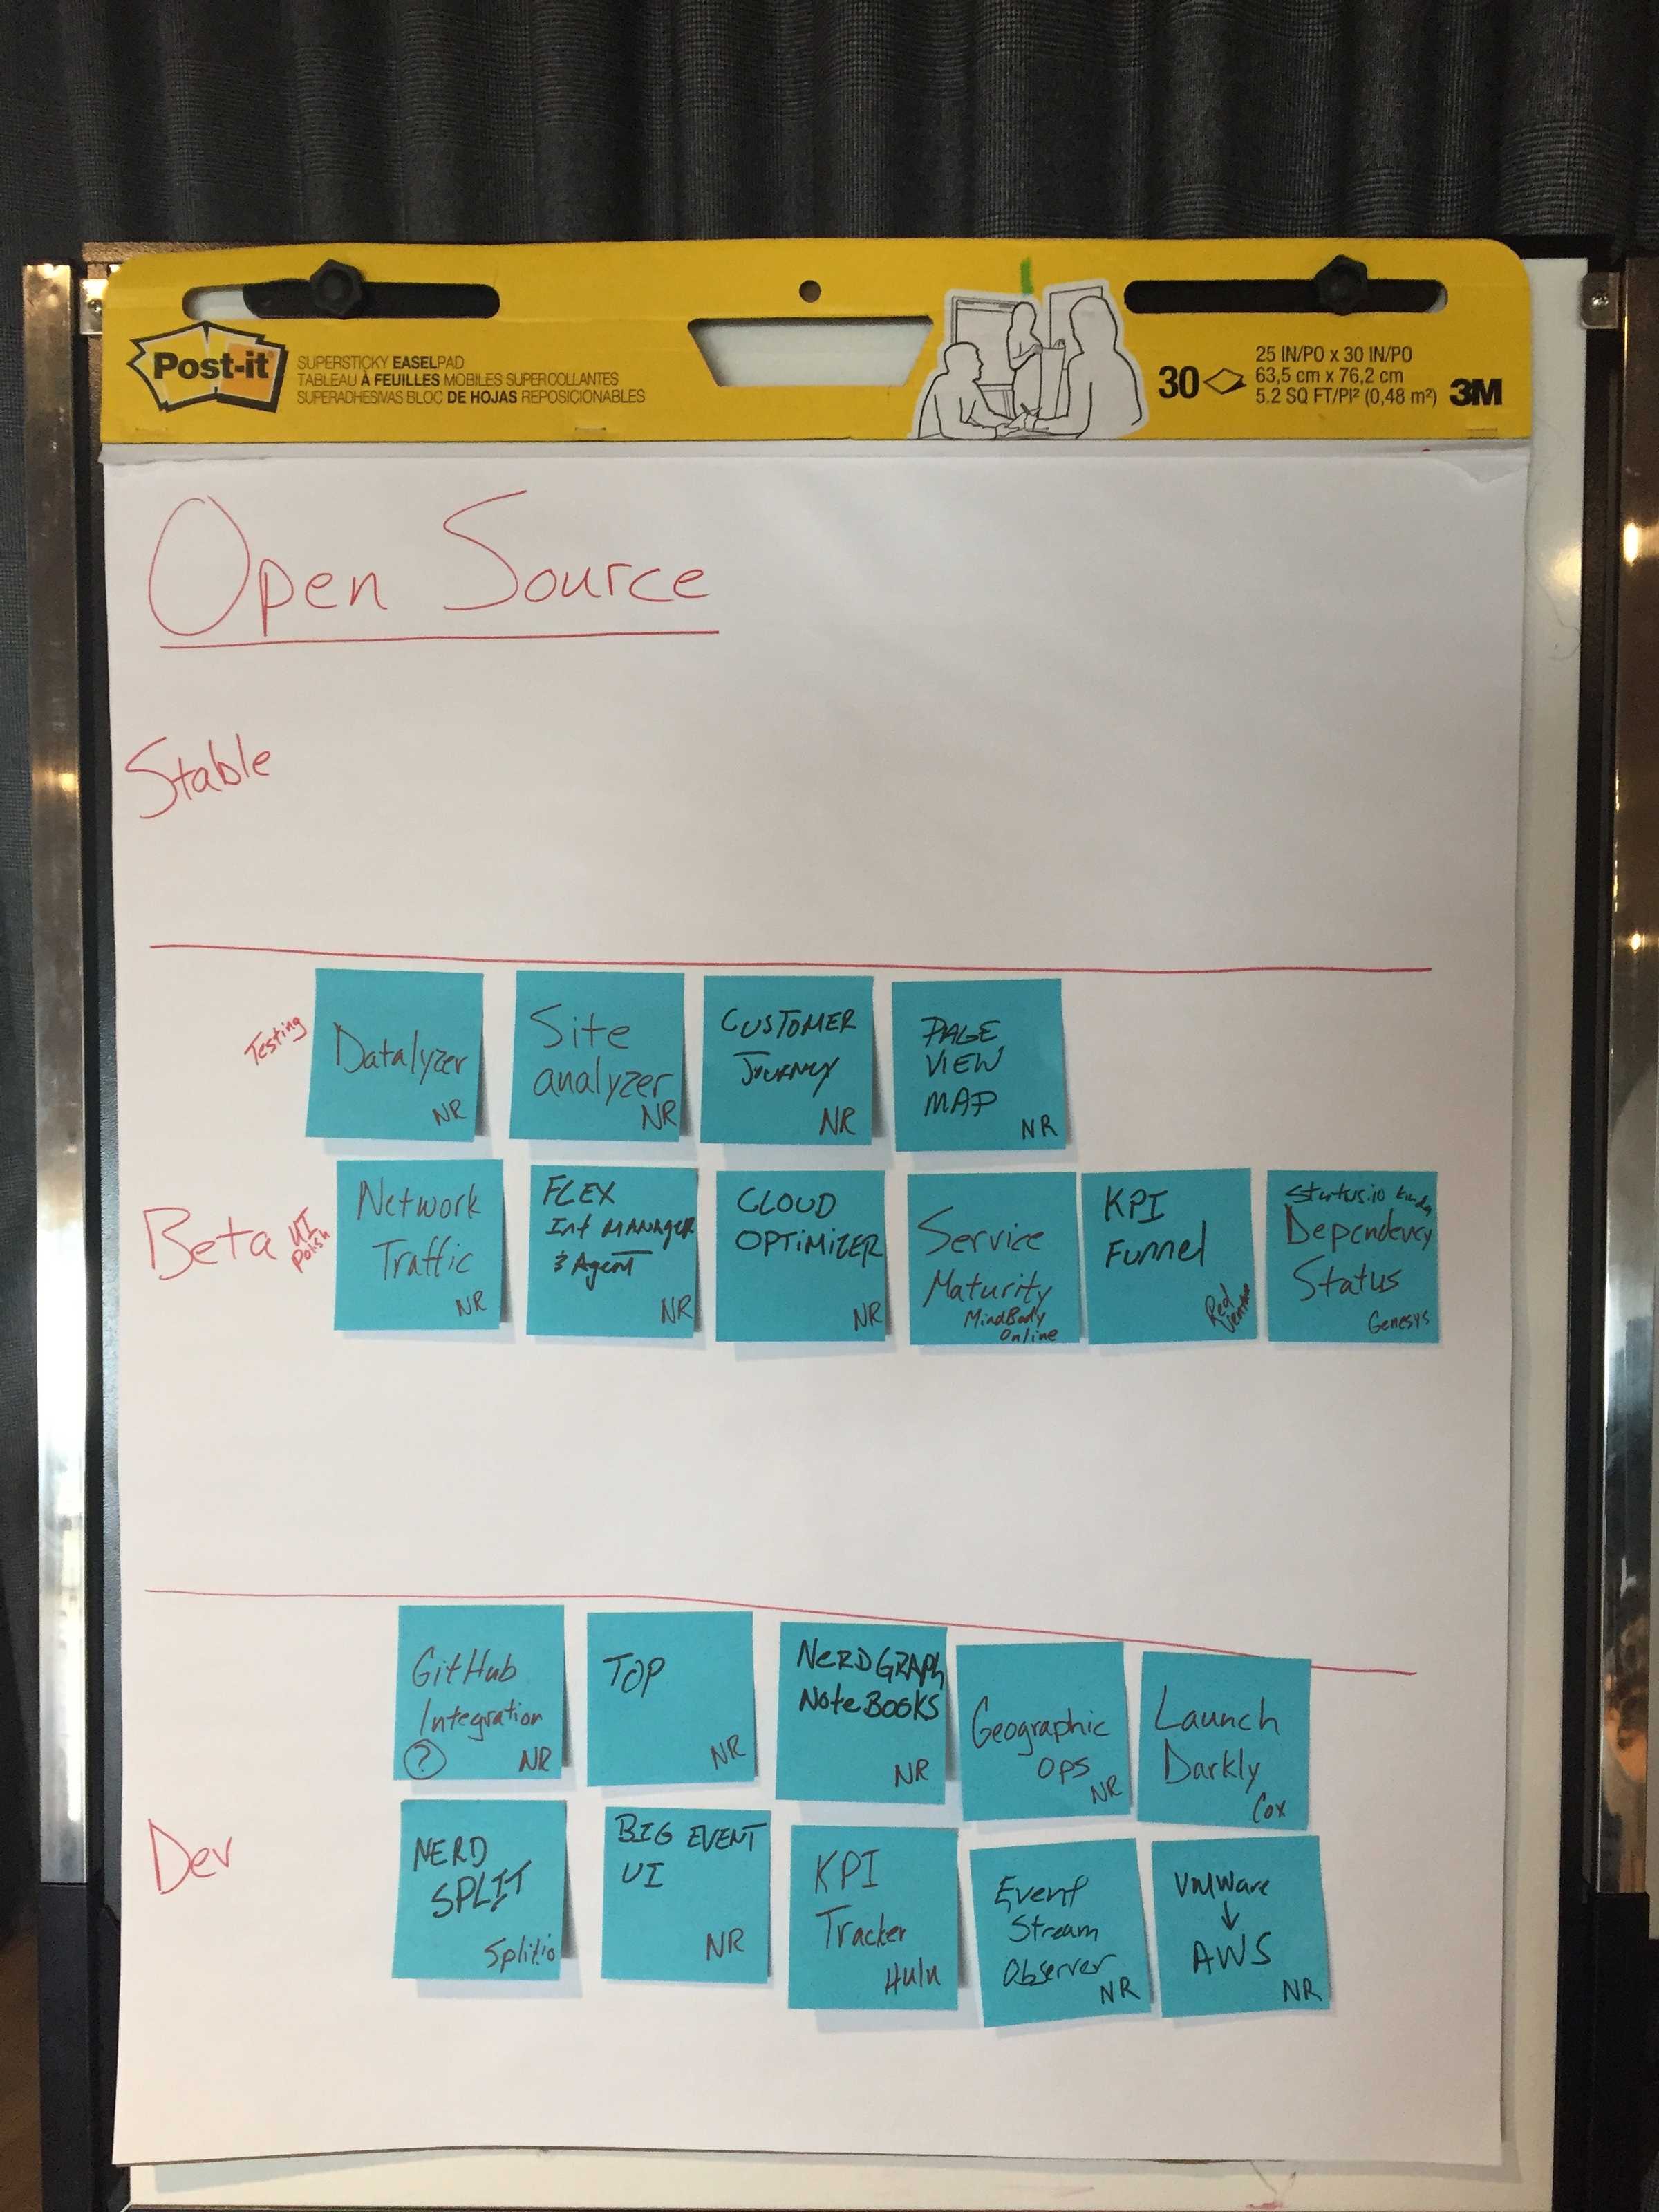 Post-it
SUPERSTICKY EASELPAD
TABLEAU À FEUILLES MOBILES SUPERCOLLANTES
SUPERADHESIVAS BLOC DE HOJAS REPOSICIONABLES
30
25 IN/PO x 30 IN/PO
63,5 cm x 76,2 cm
5.2 SQ FT/PI² (0,48 m²)
3M
Open Source
Stable
Testing
Datalyzer
NR
Site
analyzer
NR
CUSTOMER
JOURNEY
NR
PAGE
VIEW
MAP
NR
Beta
UI
polish
Network
Traffic
NR
FLEX
Int MANAGER
& Agent
NR
CLOUD
OPTIMIZER
NR
Service
Maturity
MindBody
Online
KPI
Funnel
Red
Status.io kinda
Dependency
Status
Genesys
Dev
GitHub
Integration
? NR
TOP
NR
NERDGRAPH
NoteBOOKS
NR
Geographic
OPS
NR
Launch
Darkly
Cox
NERD
SPLIT
Split.io
BIG EVENT
UI
NR
KPI
Tracker
Hulu
Event
Stream
Observer
NR
VMWare
↓
AWS
NR